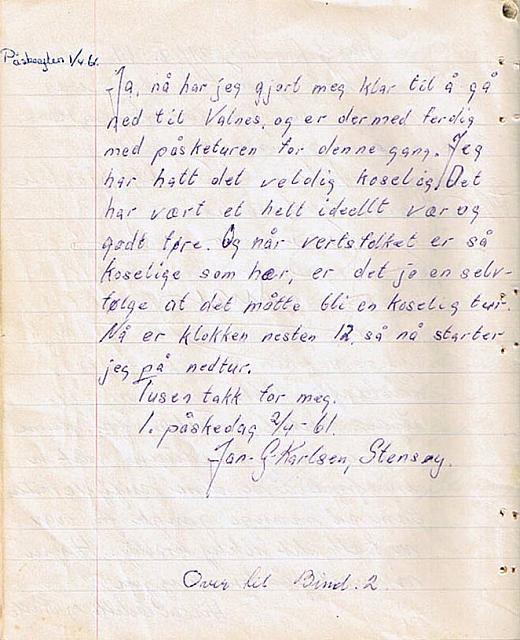 Påskeaften 1/4.61.
Ja, nå har jeg gjort meg klar til å gå
ned til Valnes, og er dermed ferdig
med påsketuren for denne gang. Jeg
har hatt det veldig koselig. Det
har vært et helt ideellt vær og
godt føre. Og når vertsfolket er så
koselige som hær, er det jo en selv-
følge at det måtte bli en koselig tur.
Nå er klokken nesten 12, så nå starter
jeg på nedtur.
Tusen takk for meg.
1. påskedag 2/4-61
Jan-G-Karlsen, Stensøy.
Over til Bind. 2.